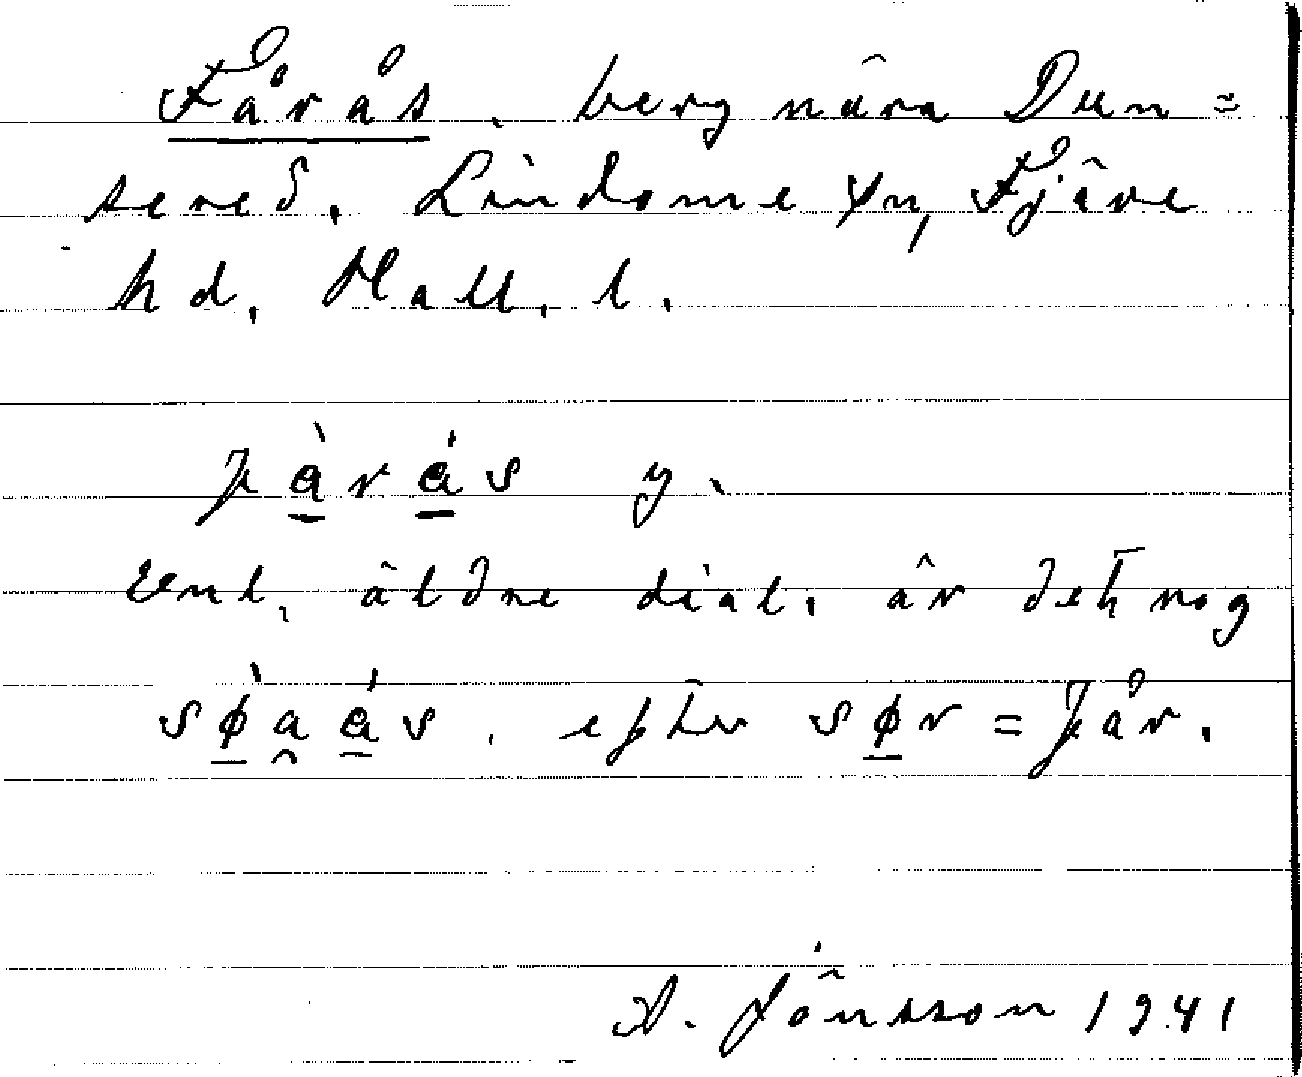 Fårås. berg nära Dun=
sered. Lindome sn, Fjäre
hd, Hall. l.
fàrás y.
Enl. äldre dial. är det nog
søaás. efter sør = får.
A. Jönsson 1941